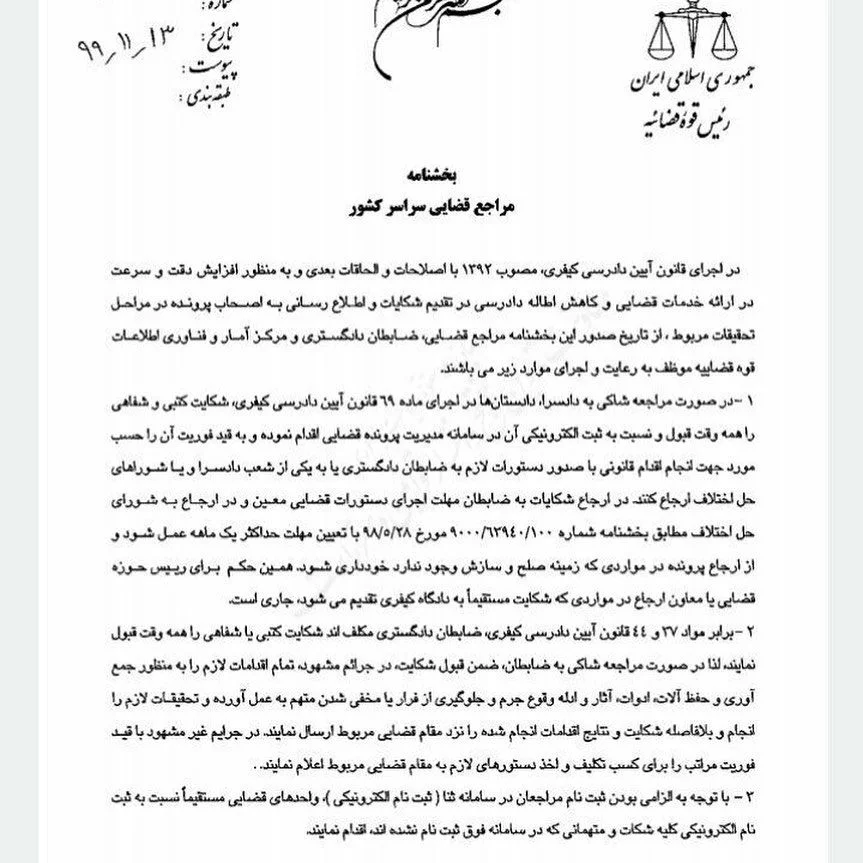 جمهوری اسلامی ایران
رئیس قوهٔ قضائیه
شماره :
تاریخ : ۹۹/۱۱/۱۳
پیوست :
طبقه‌بندی :
بخشنامه
مراجع قضایی سراسر کشور
در اجرای قانون آیین دادرسی کیفری، مصوب ۱۳۹۲ با اصلاحات و الحاقات بعدی و به منظور افزایش دقت و سرعت
در ارائه خدمات قضایی و کاهش اطاله دادرسی در تقدیم شکایات و اطلاع رسانی به اصحاب پرونده در مراحل
تحقیقات مربوط ، از تاریخ صدور این بخشنامه مراجع قضایی، ضابطان دادگستری و مرکز آمار و فناوری اطلاعات
قوه قضاییه موظف به رعایت و اجرای موارد زیر می باشند.
۱ -در صورت مراجعه شاکی به دادسرا، دادستان‌ها در اجرای ماده ۶۹ قانون آیین دادرسی کیفری، شکایت کتبی و شفاهی
را همه وقت قبول و نسبت به ثبت الکترونیکی آن در سامانه مدیریت پرونده قضایی اقدام نموده و به قید فوریت آن را حسب
مورد جهت انجام اقدام قانونی با صدور دستورات لازم به ضابطان دادگستری یا به یکی از شعب دادسرا و یا شوراهای
حل اختلاف ارجاع کنند. در ارجاع شکایات به ضابطان مهلت اجرای دستورات قضایی معین و در ارجاع به شورای
حل اختلاف مطابق بخشنامه شماره ۹۰۰۰/۶۳۹۴۰/۱۰۰ مورخ ۹۸/۵/۲۸ با تعیین مهلت حداکثر یک ماهه عمل شود و
از ارجاع پرونده در مواردی که زمینه صلح و سازش وجود ندارد خودداری شود. همین حکم برای رییس حوزه
قضایی یا معاون ارجاع در مواردی که شکایت مستقیماً به دادگاه کیفری تقدیم می شود، جاری است.
۲ -برابر مواد ۳۷ و ۴۴ قانون آیین دادرسی کیفری، ضابطان دادگستری مکلف اند شکایت کتبی یا شفاهی را همه وقت قبول
نمایند، لذا در صورت مراجعه شاکی به ضابطان، ضمن قبول شکایت، در جرائم مشهود، تمام اقدامات لازم را به منظور جمع
آوری و حفظ آلات، ادوات، آثار و ادله وقوع جرم و جلوگیری از فرار یا مخفی شدن متهم به عمل آورده و تحقیقات لازم را
انجام و بلافاصله شکایت و نتایج اقدامات انجام شده را نزد مقام قضایی مربوط ارسال نمایند. در جرایم غیر مشهود با قید
فوریت مراتب را برای کسب تکلیف و اخذ دستورهای لازم به مقام قضایی مربوط اعلام نمایند. .
۳ - با توجه به الزامی بودن ثبت نام مراجعان در سامانه ثنا ( ثبت نام الکترونیکی )، واحدهای قضایی مستقیماً نسبت به ثبت
نام الکترونیکی کلیه شکات و متهمانی که در سامانه فوق ثبت نام نشده اند، اقدام نمایند.